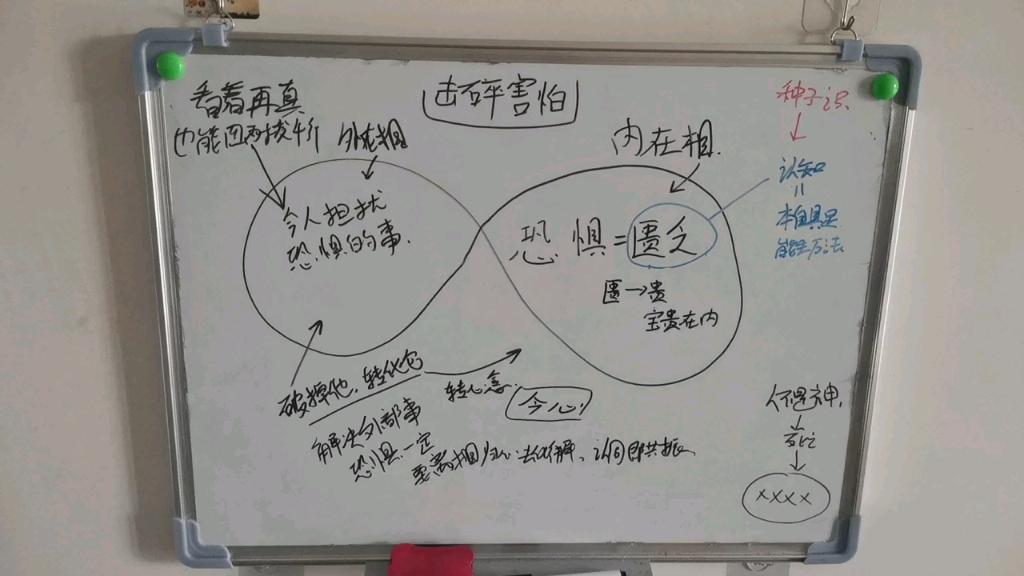 击碎害怕
看着再真
也能
外在相
令人担扰
恐惧的事.
内在相.
恐惧=匮乏
匮→贵
宝贵在内
种子识
认知
=
本自具足
能生万法
破掉他,转化它
转心念.
今心
解决外部事
恐惧一定
要离相
认同即共振
人
神,
××××